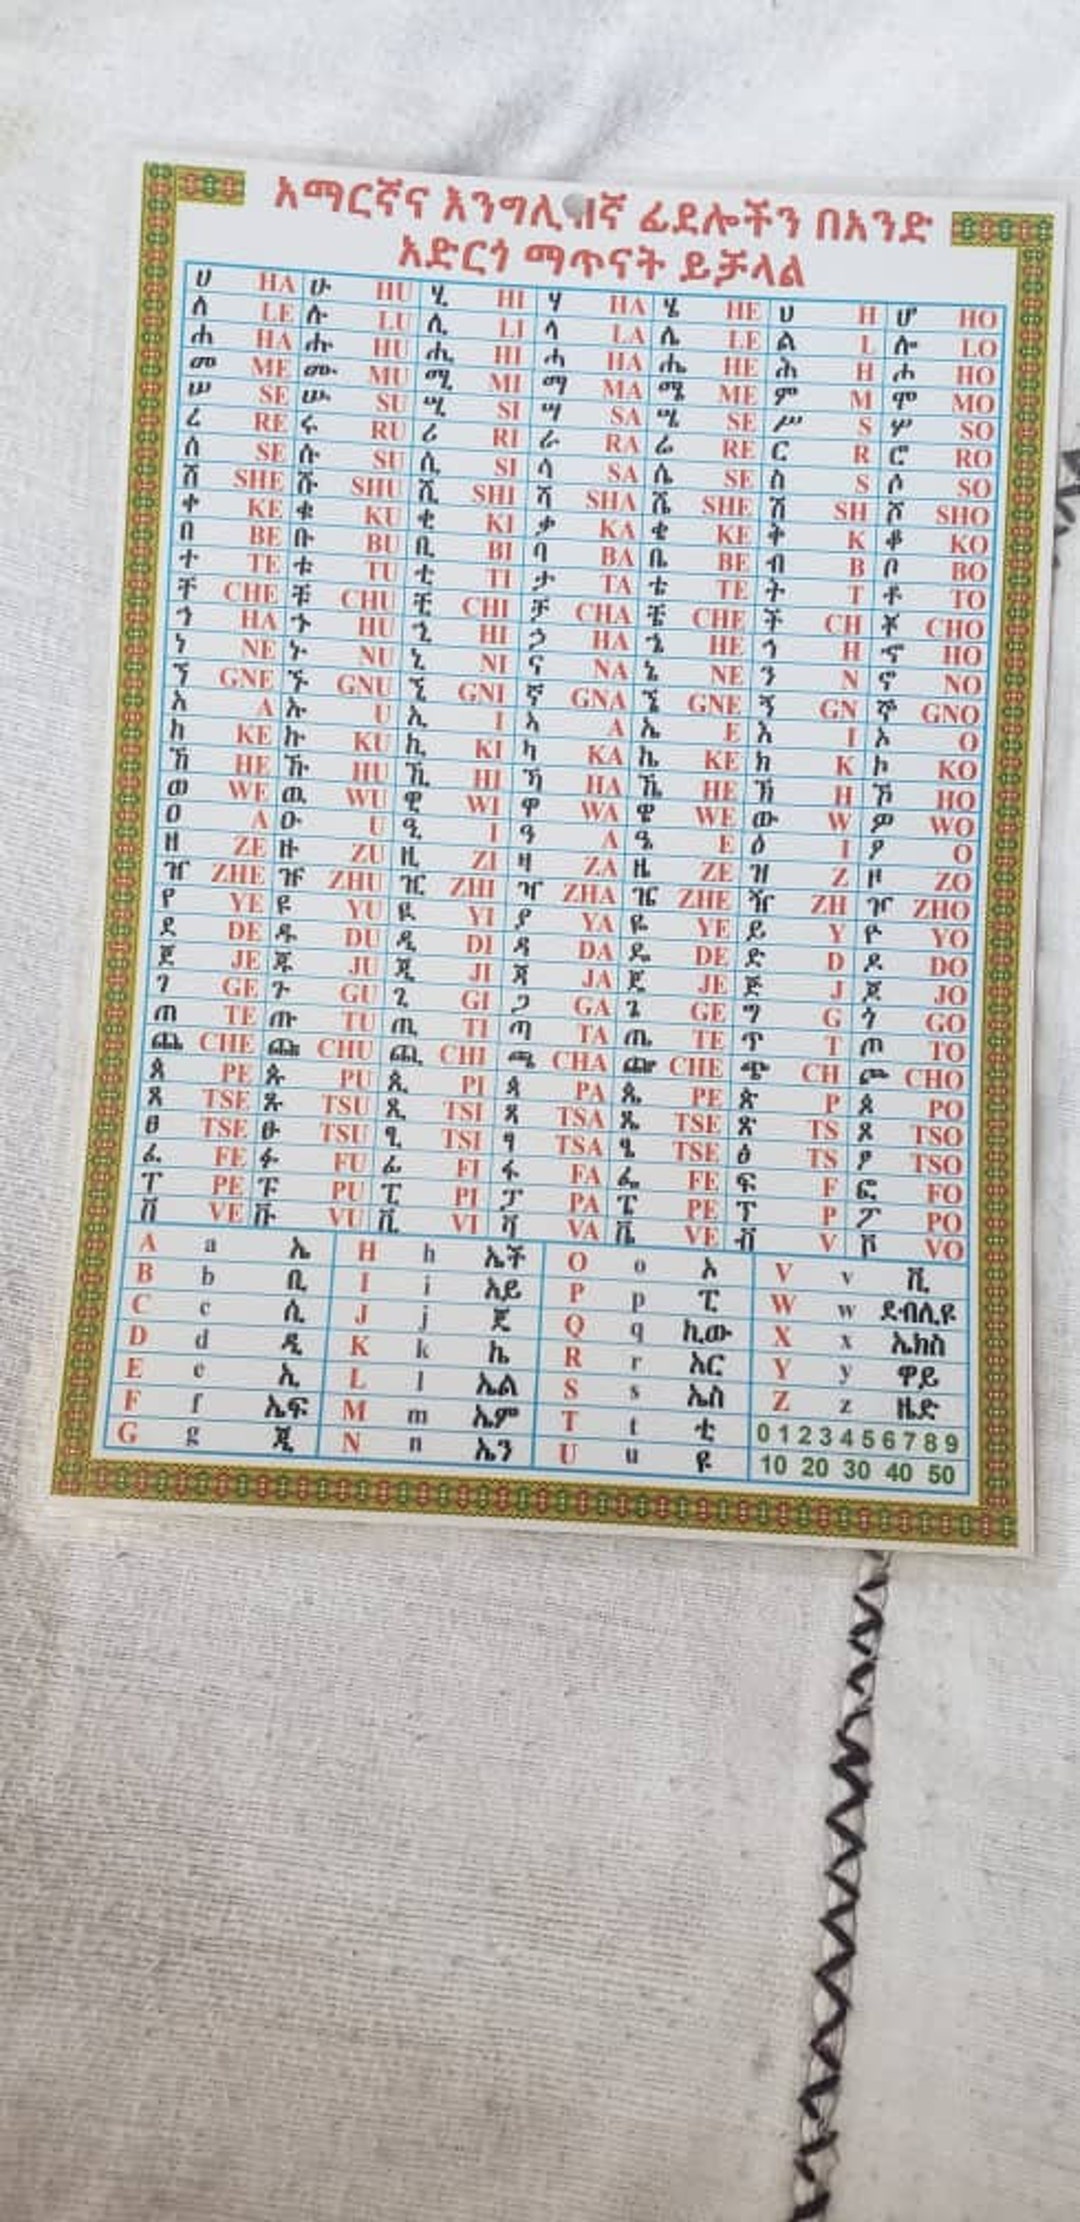 አማርኛና እንግሊዝኛ ፊደሎችን በአንድ
አድርጎ ማጥናት ይቻላል
ሀ HA ሁ HU ሂ HI ሃ HA ሄ HE ህ H ሆ HO
ለ LE ሉ LU ሊ LI ላ LA ሌ LE ል L ሎ LO
ሐ HA ሑ HU ሒ HI ሓ HA ሔ HE ሕ H ሖ HO
መ ME ሙ MU ሚ MI ማ MA ሜ ME ም M ሞ MO
ሠ SE ሡ SU ሢ SI ሣ SA ሤ SE ሥ S ሦ SO
ረ RE ሩ RU ሪ RI ራ RA ሬ RE ር R ሮ RO
ሰ SE ሱ SU ሲ SI ሳ SA ሴ SE ስ S ሶ SO
ሸ SHE ሹ SHU ሺ SHI ሻ SHA ሼ SHE ሽ SH ሾ SHO
ቀ KE ቁ KU ቂ KI ቃ KA ቄ KE ቅ K ቆ KO
በ BE ቡ BU ቢ BI ባ BA ቤ BE ብ B ቦ BO
ተ TE ቱ TU ቲ TI ታ TA ቴ TE ት T ቶ TO
ቸ CHE ቹ CHU ቺ CHI ቻ CHA ቼ CHE ች CH ቾ CHO
ኀ HA ኁ HU ኂ HI ኃ HA ኄ HE ኅ H ኆ HO
ነ NE ኑ NU ኒ NI ና NA ኔ NE ን N ኖ NO
ኘ GNE ኙ GNU ኚ GNI ኛ GNA ኜ GNE ኝ GN ኞ GNO
አ A ኡ U ኢ I ኣ A ኤ E እ I ኦ O
ከ KE ኩ KU ኪ KI ካ KA ኬ KE ክ K ኮ KO
ኸ HE ኹ HU ኺ HI ኻ HA ኼ HE ኽ H ኾ HO
ወ WE ዉ WU ዊ WI ዋ WA ዌ WE ው W ዎ WO
ዐ A ዑ U ዒ I ዓ A ዔ E ዕ I ዖ O
ዘ ZE ዙ ZU ዚ ZI ዛ ZA ዜ ZE ዝ Z ዞ ZO
ዠ ZHE ዡ ZHU ዢ ZHI ዣ ZHA ዤ ZHE ዥ ZH ዦ ZHO
የ YE ዩ YU ዪ YI ያ YA ዬ YE ይ Y ዮ YO
ደ DE ዱ DU ዲ DI ዳ DA ዴ DE ድ D ዶ DO
ጀ JE ጁ JU ጂ JI ጃ JA ጄ JE ጅ J ጆ JO
ገ GE ጉ GU ጊ GI ጋ GA ጌ GE ግ G ጎ GO
ጠ TE ጡ TU ጢ TI ጣ TA ጤ TE ጥ T ጦ TO
ጨ CHE ጩ CHU ጪ CHI ጫ CHA ጬ CHE ጭ CH ጮ CHO
ጰ PE ጱ PU ጲ PI ጳ PA ጴ PE ጵ P ጶ PO
ጸ TSE ጹ TSU ጺ TSI ጻ TSA ጼ TSE ጽ TS ጾ TSO
ፀ TSE ፁ TSU ፂ TSI ፃ TSA ፄ TSE ፅ TS ፆ TSO
ፈ FE ፉ FU ፊ FI ፋ FA ፌ FE ፍ F ፎ FO
ፐ PE ፑ PU ፒ PI ፓ PA ፔ PE ፕ P ፖ PO
ቨ VE ቩ VU ቪ VI ቫ VA ቬ VE ቭ V ቮ VO
A a ኤ H h ኤች O o ኦ V v ቪ
B b ቢ I i አይ P p ፒ W w ደብሊዩ
C c ሲ J j ጄ Q q ኪው X x ኤክስ
D d ዲ K k ኬ R r አር Y y ዋይ
E e ኢ L l ኤል S s ኤስ Z z ዜድ
F f ኤፍ M m ኤም T t ቲ 0 1 2 3 4 5 6 7 8 9
G g ጂ N n ኤን U u ዩ 10 20 30 40 50